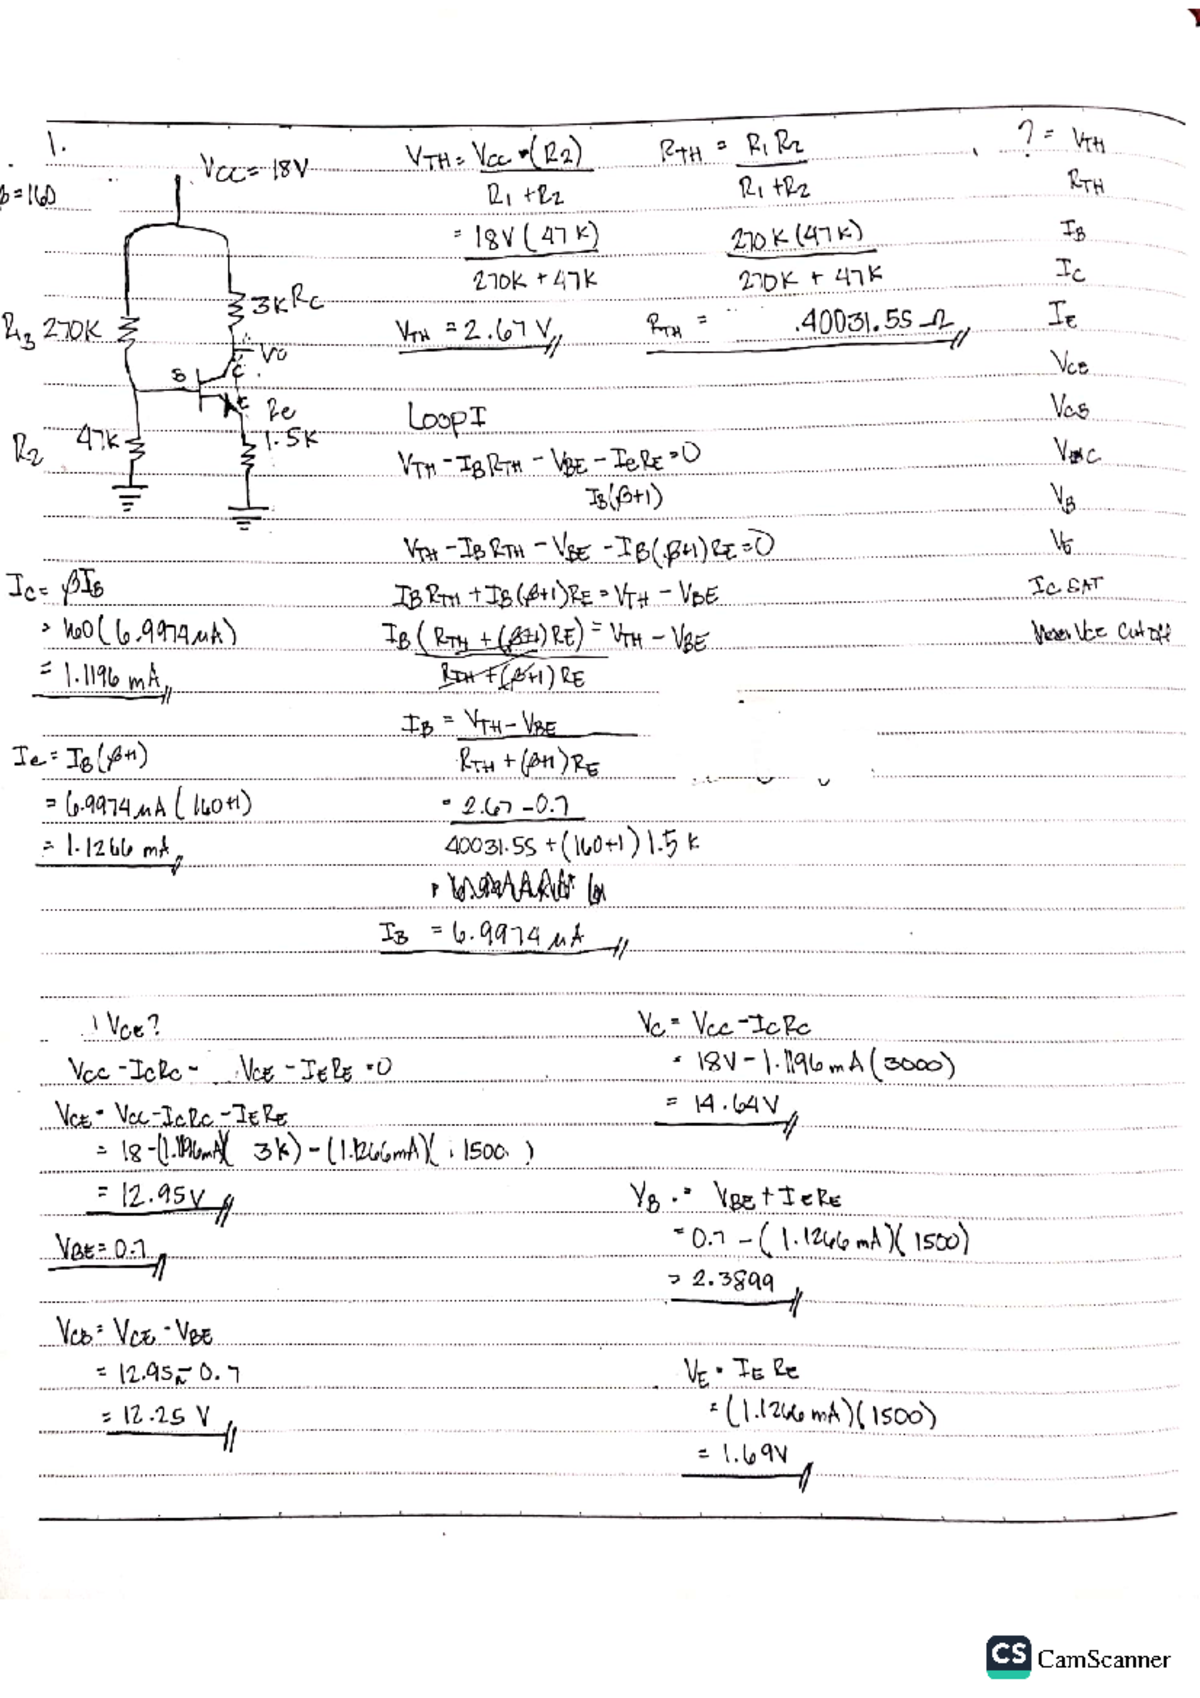 1.
VCC = 18V
β=160
R1 270K
3K RC
Vo
C
B
E
Re
1.5K
R2 47K
VTH = VCC • (R2)
R1 + R2
= 18V (47K)
270K + 47K
VTH = 2.67 V
RTH = R1 R2
R1 + R2
270K (47K)
270K + 47K
RTH = 40031.55 Ω
? = VTH
RTH
IB
IC
IE
VCE
VCB
VC
VB
VE
IC SAT
VCE Cut Off
Loop I
VTH - IB RTH - VBE - IE RE = 0
IB(β+1)
VTH - IB RTH - VBE - IB(β+1) RE = 0
IB RTH + IB(β+1) RE = VTH - VBE
IB (RTH + (β+1) RE) = VTH - VBE
RTH + (β+1) RE
IB = VTH - VBE
RTH + (β+1) RE
= 2.67 - 0.7
40031.55 + (160+1) 1.5 K
IB = 6.9974 μA
IC = βIB
= 160 (6.9974 μA)
= 1.1196 mA
Ie = IB (β+1)
= 6.9974 μA (160+1)
= 1.1266 mA
VCE?
VCC - ICRC - VCE - IERE = 0
VCE = VCC - ICRC - IERE
= 18 - (1.1196mA)(3K) - (1.1266mA)(1500)
= 12.95V
VBE = 0.7
VCB = VCE - VBE
= 12.95 - 0.7
= 12.25 V
VC = VCC - ICRC
= 18V - 1.1196 mA (3000)
= 14.64V
VB = VBE + IERE
= 0.7 - (1.1266 mA)(1500)
= 2.3899
VE = IE RE
= (1.1266 mA)(1500)
= 1.69V
CS CamScanner